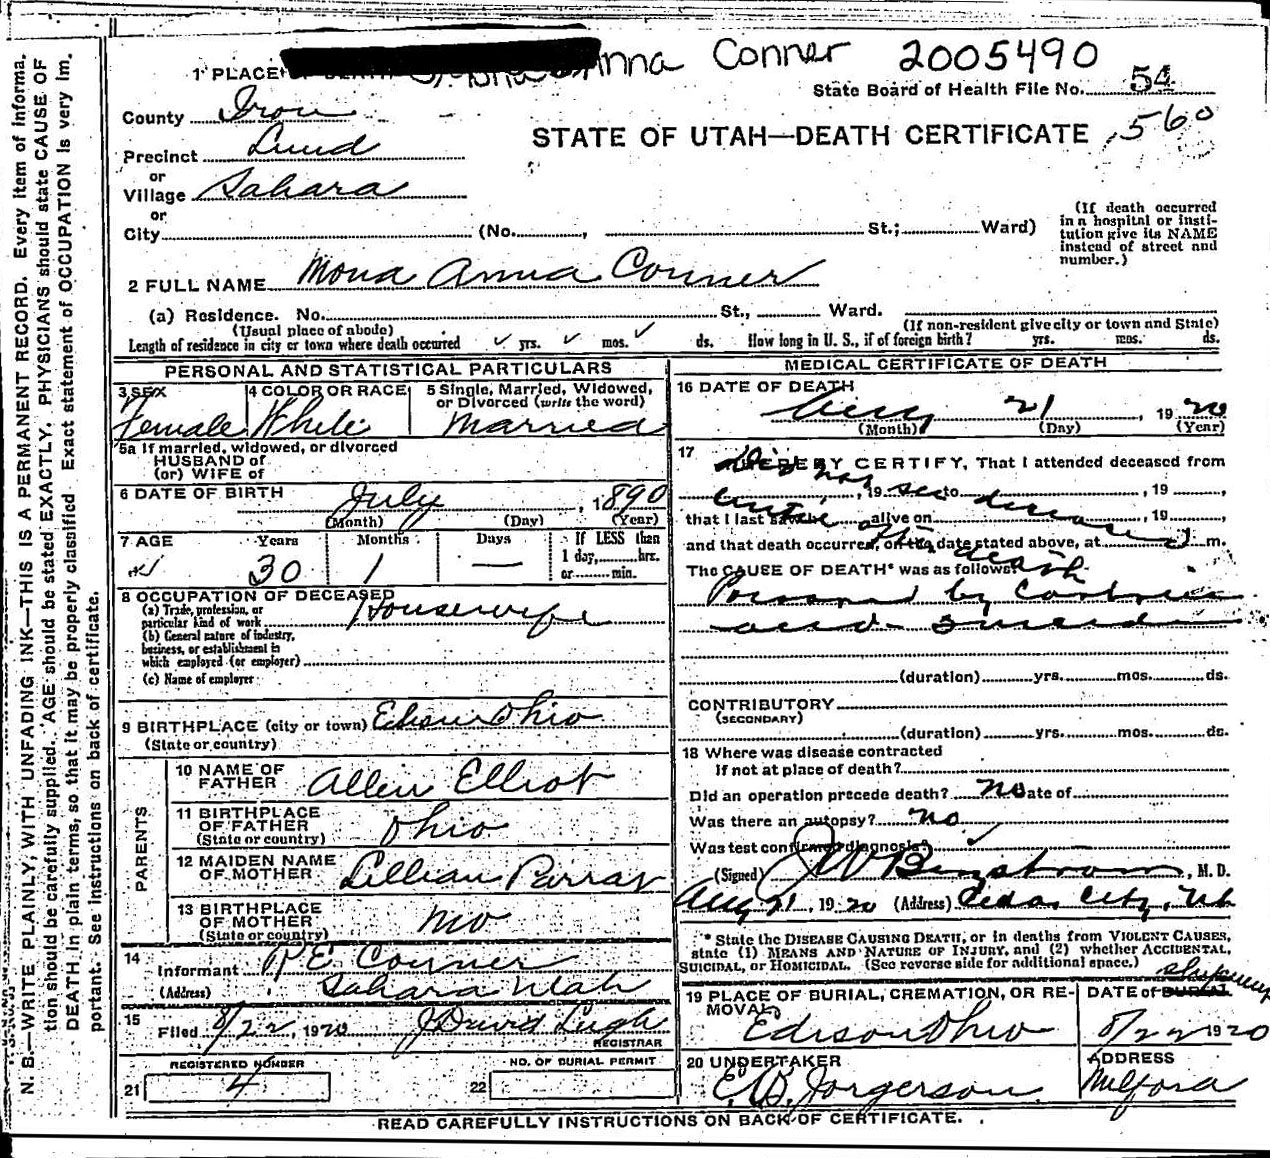 Anna Conner 2005490
1 PLACE OF DEATH
State Board of Health File No. 54
County Iron
STATE OF UTAH—DEATH CERTIFICATE 560
Precinct Lund
or
Village Sahara
or
City (No. , St.; Ward)
(If death occurred in a hospital or insti-
tution give its NAME
instead of street and
number.)
2 FULL NAME Mona Anna Conner
(a) Residence. No. St., Ward.
(Usual place of abode) (If non-resident give city or town and State)
Length of residence in city or town where death occurred yrs. mos. ds. How long in U. S., if of foreign birth? yrs. mos. ds.
PERSONAL AND STATISTICAL PARTICULARS
3 SEX 4 COLOR OR RACE 5 Single, Married, Widowed,
or Divorced (write the word)
Female White Married
5a If married, widowed, or divorced
HUSBAND of
(or) WIFE of
6 DATE OF BIRTH July , 1890
(Month) (Day) (Year)
7 AGE Years Months Days If LESS than
1 day, hrs.
or min.
30 1 —
8 OCCUPATION OF DECEASED
(a) Trade, profession, or
particular kind of work Housewife
(b) General nature of industry,
business, or establishment in
which employed (or employer)
(c) Name of employer
9 BIRTHPLACE (city or town) Edison Ohio
(State or country)
PARENTS
10 NAME OF
FATHER Allen Elliot
11 BIRTHPLACE
OF FATHER Ohio
(State or country)
12 MAIDEN NAME
OF MOTHER Lillian
13 BIRTHPLACE
OF MOTHER Mo
(State or country)
14
Informant R E Conner
(Address) Sahara Utah
15
Filed 8/22 1920 J David Leigh
REGISTRAR
REGISTERED NUMBER NO. OF BURIAL PERMIT
21 4 22
MEDICAL CERTIFICATE OF DEATH
16 DATE OF DEATH
Aug 21 , 1920
(Month) (Day) (Year)
17 I HEREBY CERTIFY, That I attended deceased from
Did not see deceased until after death
, 19 to , 19 ,
that I last saw h alive on , 19 ,
and that death occurred, on the date stated above, at m.
The CAUSE OF DEATH* was as follows:
Poisoned by Carbolic
acid - Suicide
(duration) yrs. mos. ds.
CONTRIBUTORY
(SECONDARY)
(duration) yrs. mos. ds.
18 Where was disease contracted
If not at place of death?
Did an operation precede death? no Date of
Was there an autopsy? no
Was test confirmed diagnosis?
(Signed) J W Bergstrom , M. D.
Aug 21 , 1920 (Address) Cedar City, Ut
* State the DISEASE CAUSING DEATH, or in deaths from VIOLENT CAUSES,
state (1) MEANS AND NATURE OF INJURY, and (2) whether ACCIDENTAL,
SUICIDAL, or HOMICIDAL. (See reverse side for additional space.)
19 PLACE OF BURIAL, CREMATION, OR RE-
MOVAL Edison Ohio
DATE of BURIAL shipment
8/22 1920
20 UNDERTAKER
E. B. Jorgerson
ADDRESS
Milford
READ CAREFULLY INSTRUCTIONS ON BACK OF CERTIFICATE.
N. B.—WRITE PLAINLY, WITH UNFADING INK—THIS IS A PERMANENT RECORD. Every item of informa-
tion should be carefully supplied. AGE should be stated EXACTLY. PHYSICIANS should state CAUSE OF
DEATH in plain terms, so that it may be properly classified. Exact statement of OCCUPATION is very im-
portant. See instructions on back of certificate.